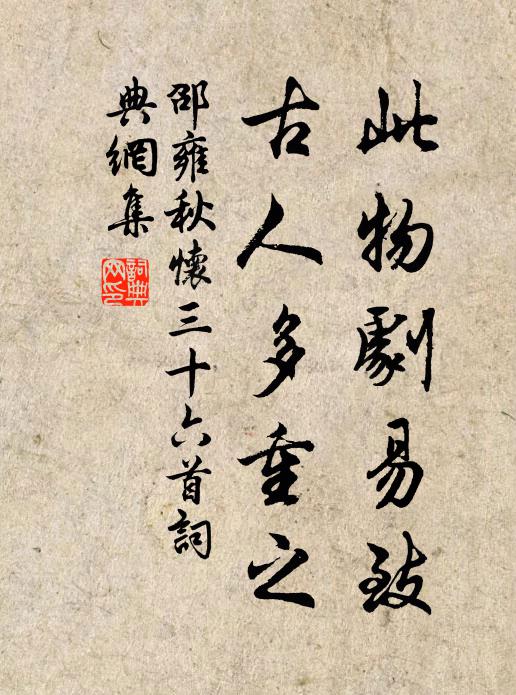 此物劇易致
古人多重之
邵雍秋懷三十六首詞
典網集
詞典網印